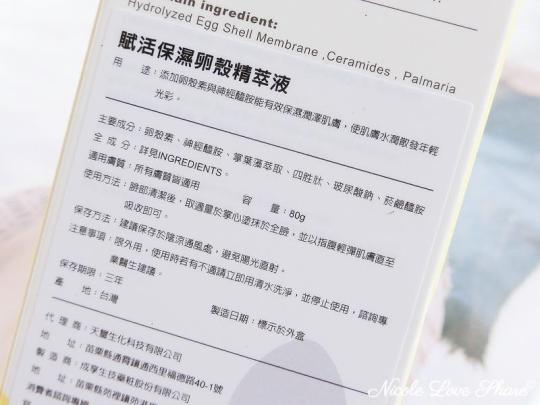 ain ingredient:
Hydrolyzed Egg Shell Membrane ,Ceramides , Palmaria
賦活保濕卵殼精萃液
用　途：添加卵殼素與神經醯胺能有效保濕潤澤肌膚，使肌膚水潤散發年輕
光彩。
主要成分：卵殼素、神經醯胺、掌葉藻萃取、四胜肽、玻尿酸鈉、菸鹼醯胺
全 成 分：詳見INGREDIENTS。
適用膚質：所有膚質皆適用　容　量：80g
使用方法：臉部清潔後，取適量於掌心塗抹於全臉，並以指腹輕彈肌膚直至
吸收即可。
保存方法：建議保存於陰涼通風處，避免陽光直射。
注意事項：限外用，使用時若有不適請立即用清水洗淨，並停止使用，諮詢專
業醫生建議。
保存期限：三年　製造日期：標示於外盒
產　地：台灣
代 理 商：天璽生化科技有限公司
地　址：苗栗縣通霄鎮通西里福德路40-1號
製 造 商：成享生技藥粧股份有限公司
地　址：苗栗縣苑裡鎮苑港
消費者諮詢專線
Nicole Love Share